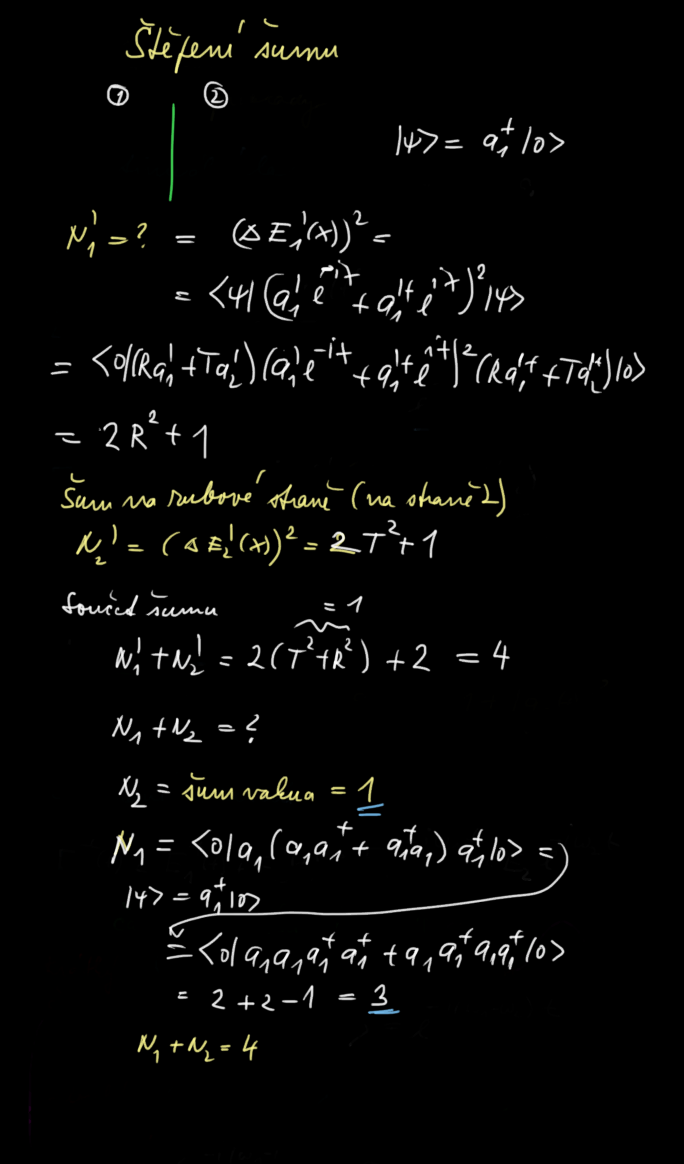 Štěpení šumu
① ②
|ψ> = a₁⁺|0>
N₁' = ? = (ΔE₁'(x))² =
= <ψ|(a₁' e^-iχ + a₁'⁺ e^iχ)²|ψ>
= <0|(Ra₁' + Ta₂')(a₁' e^-iχ + a₁'⁺ e^iχ)²(Ra₁'⁺ + Ta₂'⁺)|0>
= 2R² + 1
Šum na rubové straně (na straně 2)
N₂' = (ΔE₂'(x))² = 2T² + 1
Součet šumu
= 1
N₁' + N₂' = 2(T² + R²) + 2 = 4
N₁ + N₂ = ?
N₂ = šum vakua = 1
N₁ = <0|a₁(a₁a₁⁺ + a₁⁺a₁) a₁⁺|0> =
|ψ> = a₁⁺|0>
= <0|a₁a₁a₁⁺a₁⁺ + a₁a₁⁺a₁a₁⁺|0>
= 2 + 2 - 1 = 3
N₁ + N₂ = 4